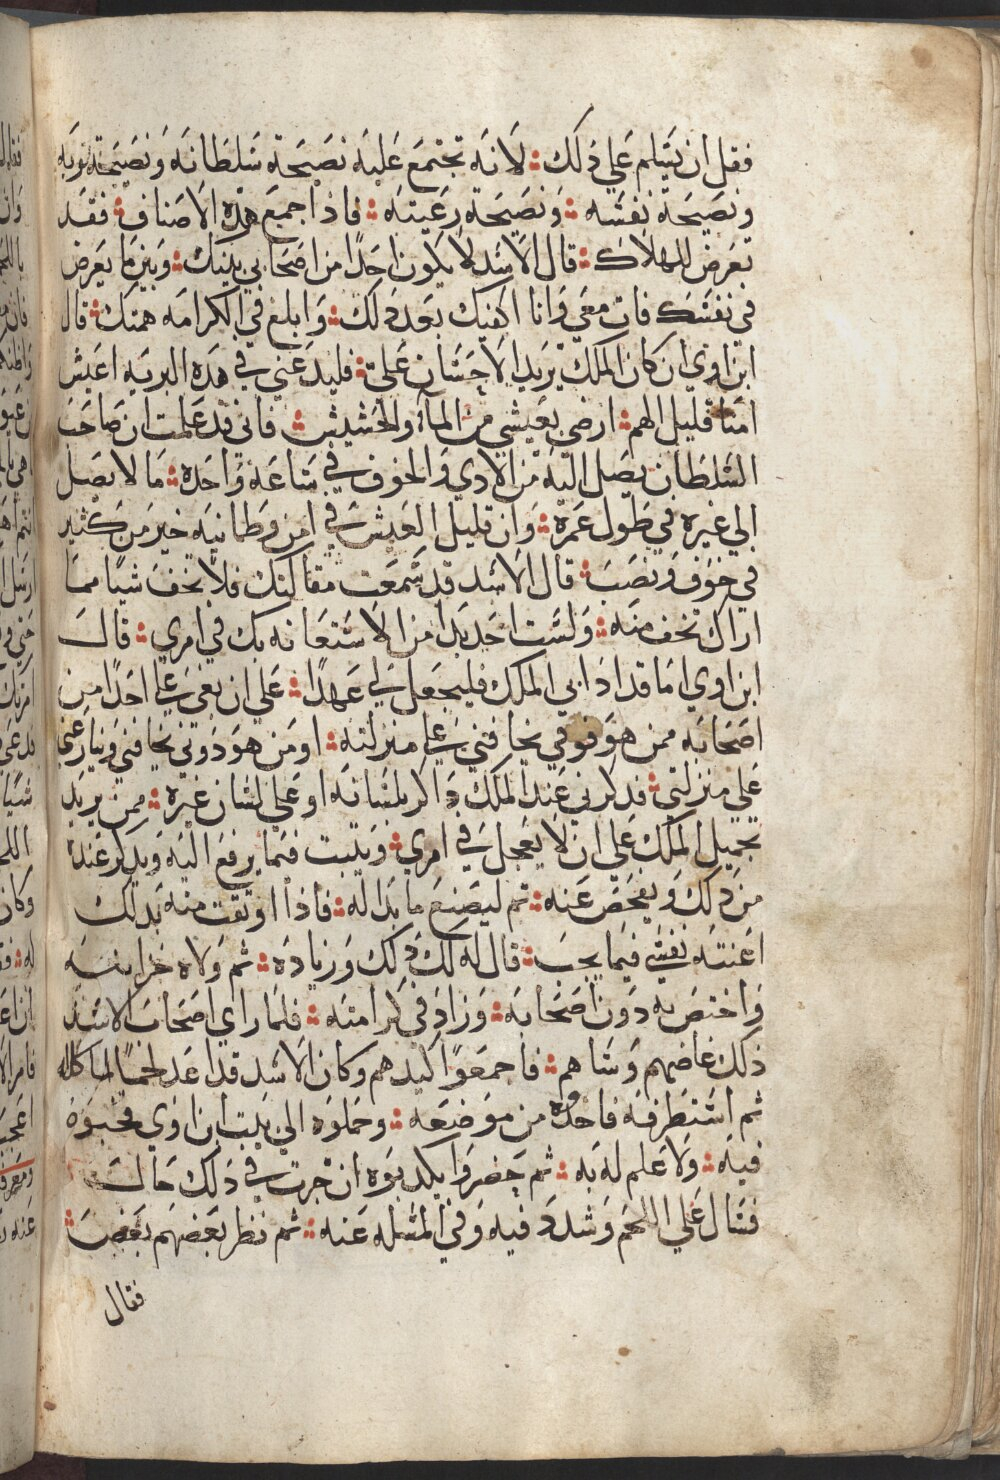 فقل ان يسلم علي ذلك لانه تجتمع عليه نصيحة سلطانه ونصيحته نوبه
ونصيحة نفسه ونصيحة رعيته فاذا جمع هذه الاصناف فقد
تعرض للهلاك قال الاسد لا يكون احدًا من اصحابي بينك وبين ما يعرض
في نفسك فانت معي وانا اكفيك بعد ذلك وابلغ في الكرامه همتك قال
ابن اوي ان كان الملك يريد الاحسان علي فليدعني في هذه البريه اعيش
امنا قليل الهم ارضي بعيشي من المآء والحشيش فاني قد علمت ان صاحب
السلطان يصل اليه من الادي والخوف في ساعه واحده ما لا يصل
الي غيره في طول عمره وان قليل العيش في امن وطمانيه خير من كثير
في خوف ونصب قال الاسد قد سمعت مقالتك فلا تخف شيًا مما
اراك تخف منه ولست احد بدا من الاستعانه بك في امري قال
ابن اوي اما قد اداابي الملك فليجعل لي عهدًا علي ان بغي علي احدًا من
اصحابه ممن هو فوقي يخافني علي منزلته او من هو دوني يخافني وينازعني
علي منزلتي فدكرني عند الملك داكر بلسانه او علي لسان غيره ممن يريد
تحميل الملك علي ان لا يعجل في امري ويتبت فيما يرفع اليه ويدكر عنده
من ذلك ويفحص عنه ثم ليصنع ما بدا له فاذا اوتقت منه بدلك
اعنته نفسي فيما يحب قال له لك ذلك وزياده ثم ولاه خزاينه
واختص به دون اصحابه وزاد في كرامته فلما راي اصحاب الاسد
ذلك غاضهم وساهم فاجمعوا كيدهم وكان الاسد قد اعد لحمًا لماكله
ثم استظرفه فاخدوه من موضعه وحملوه الي بيت ابن اوي فخبوه
فيه ولا علم له به ثم حضروا يكدبوه ان جرت في ذلك حالت
فسال علي اللحم وشدد فيه وفي المسله عنه ثم نظر بعضهم بعضا
فقال